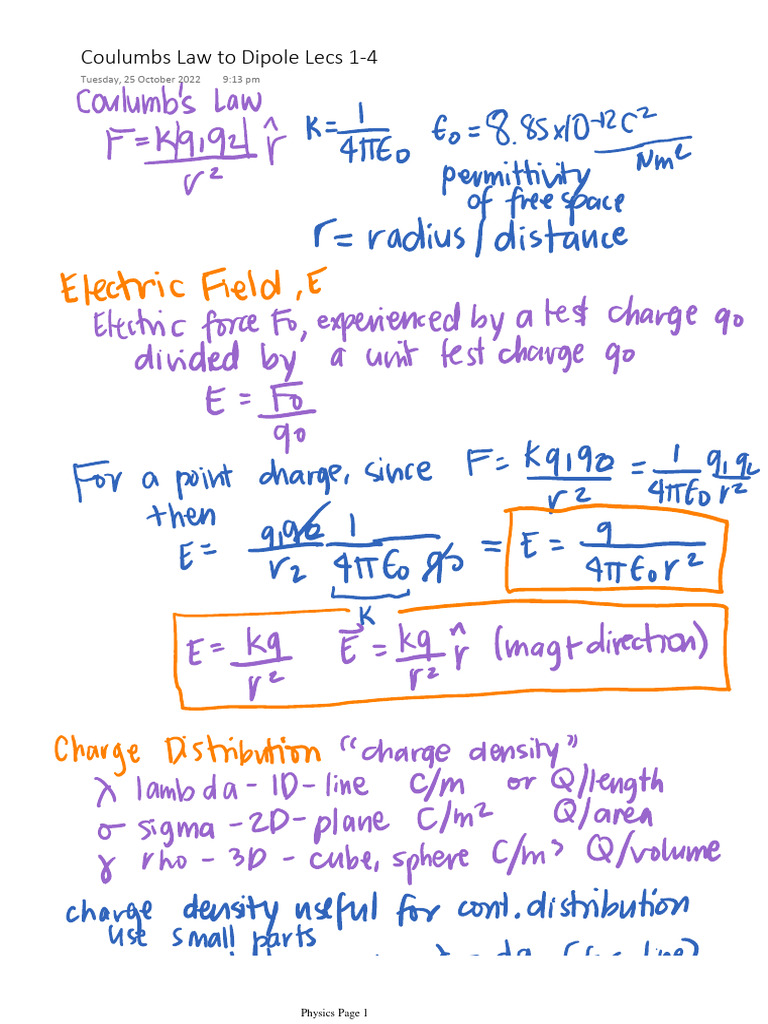 Coulumbs Law to Dipole Lecs 1-4
Tuesday, 25 October 2022 9:13 pm
Coulumb's Law
F = k|q₁q₂| / r² r̂ K = 1 / 4πε₀ ε₀ = 8.85x10⁻¹² C² / Nm²
permittivity
of free space
r = radius / distance
Electric Field, E
Electric force F₀, experienced by a test charge q₀
divided by a unit test charge q₀
E = F₀ / q₀
For a point charge, since F = kq₁q₀ / r² = 1 / 4πε₀ q₁q₂ / r²
then
E = q₁q₀ / r² 1 / 4πε₀ q₀ = E = q / 4πε₀r²
K
E = kq / r² E⃗ = kq / r² r̂ (mag+direction)
Charge Distribution "charge density"
λ lambda - 1D - line C/m or Q/length
σ sigma - 2D - plane C/m² Q/area
γ rho - 3D - cube, sphere C/m³ Q/volume
charge density useful for cont. distribution
use small parts
Physics Page 1